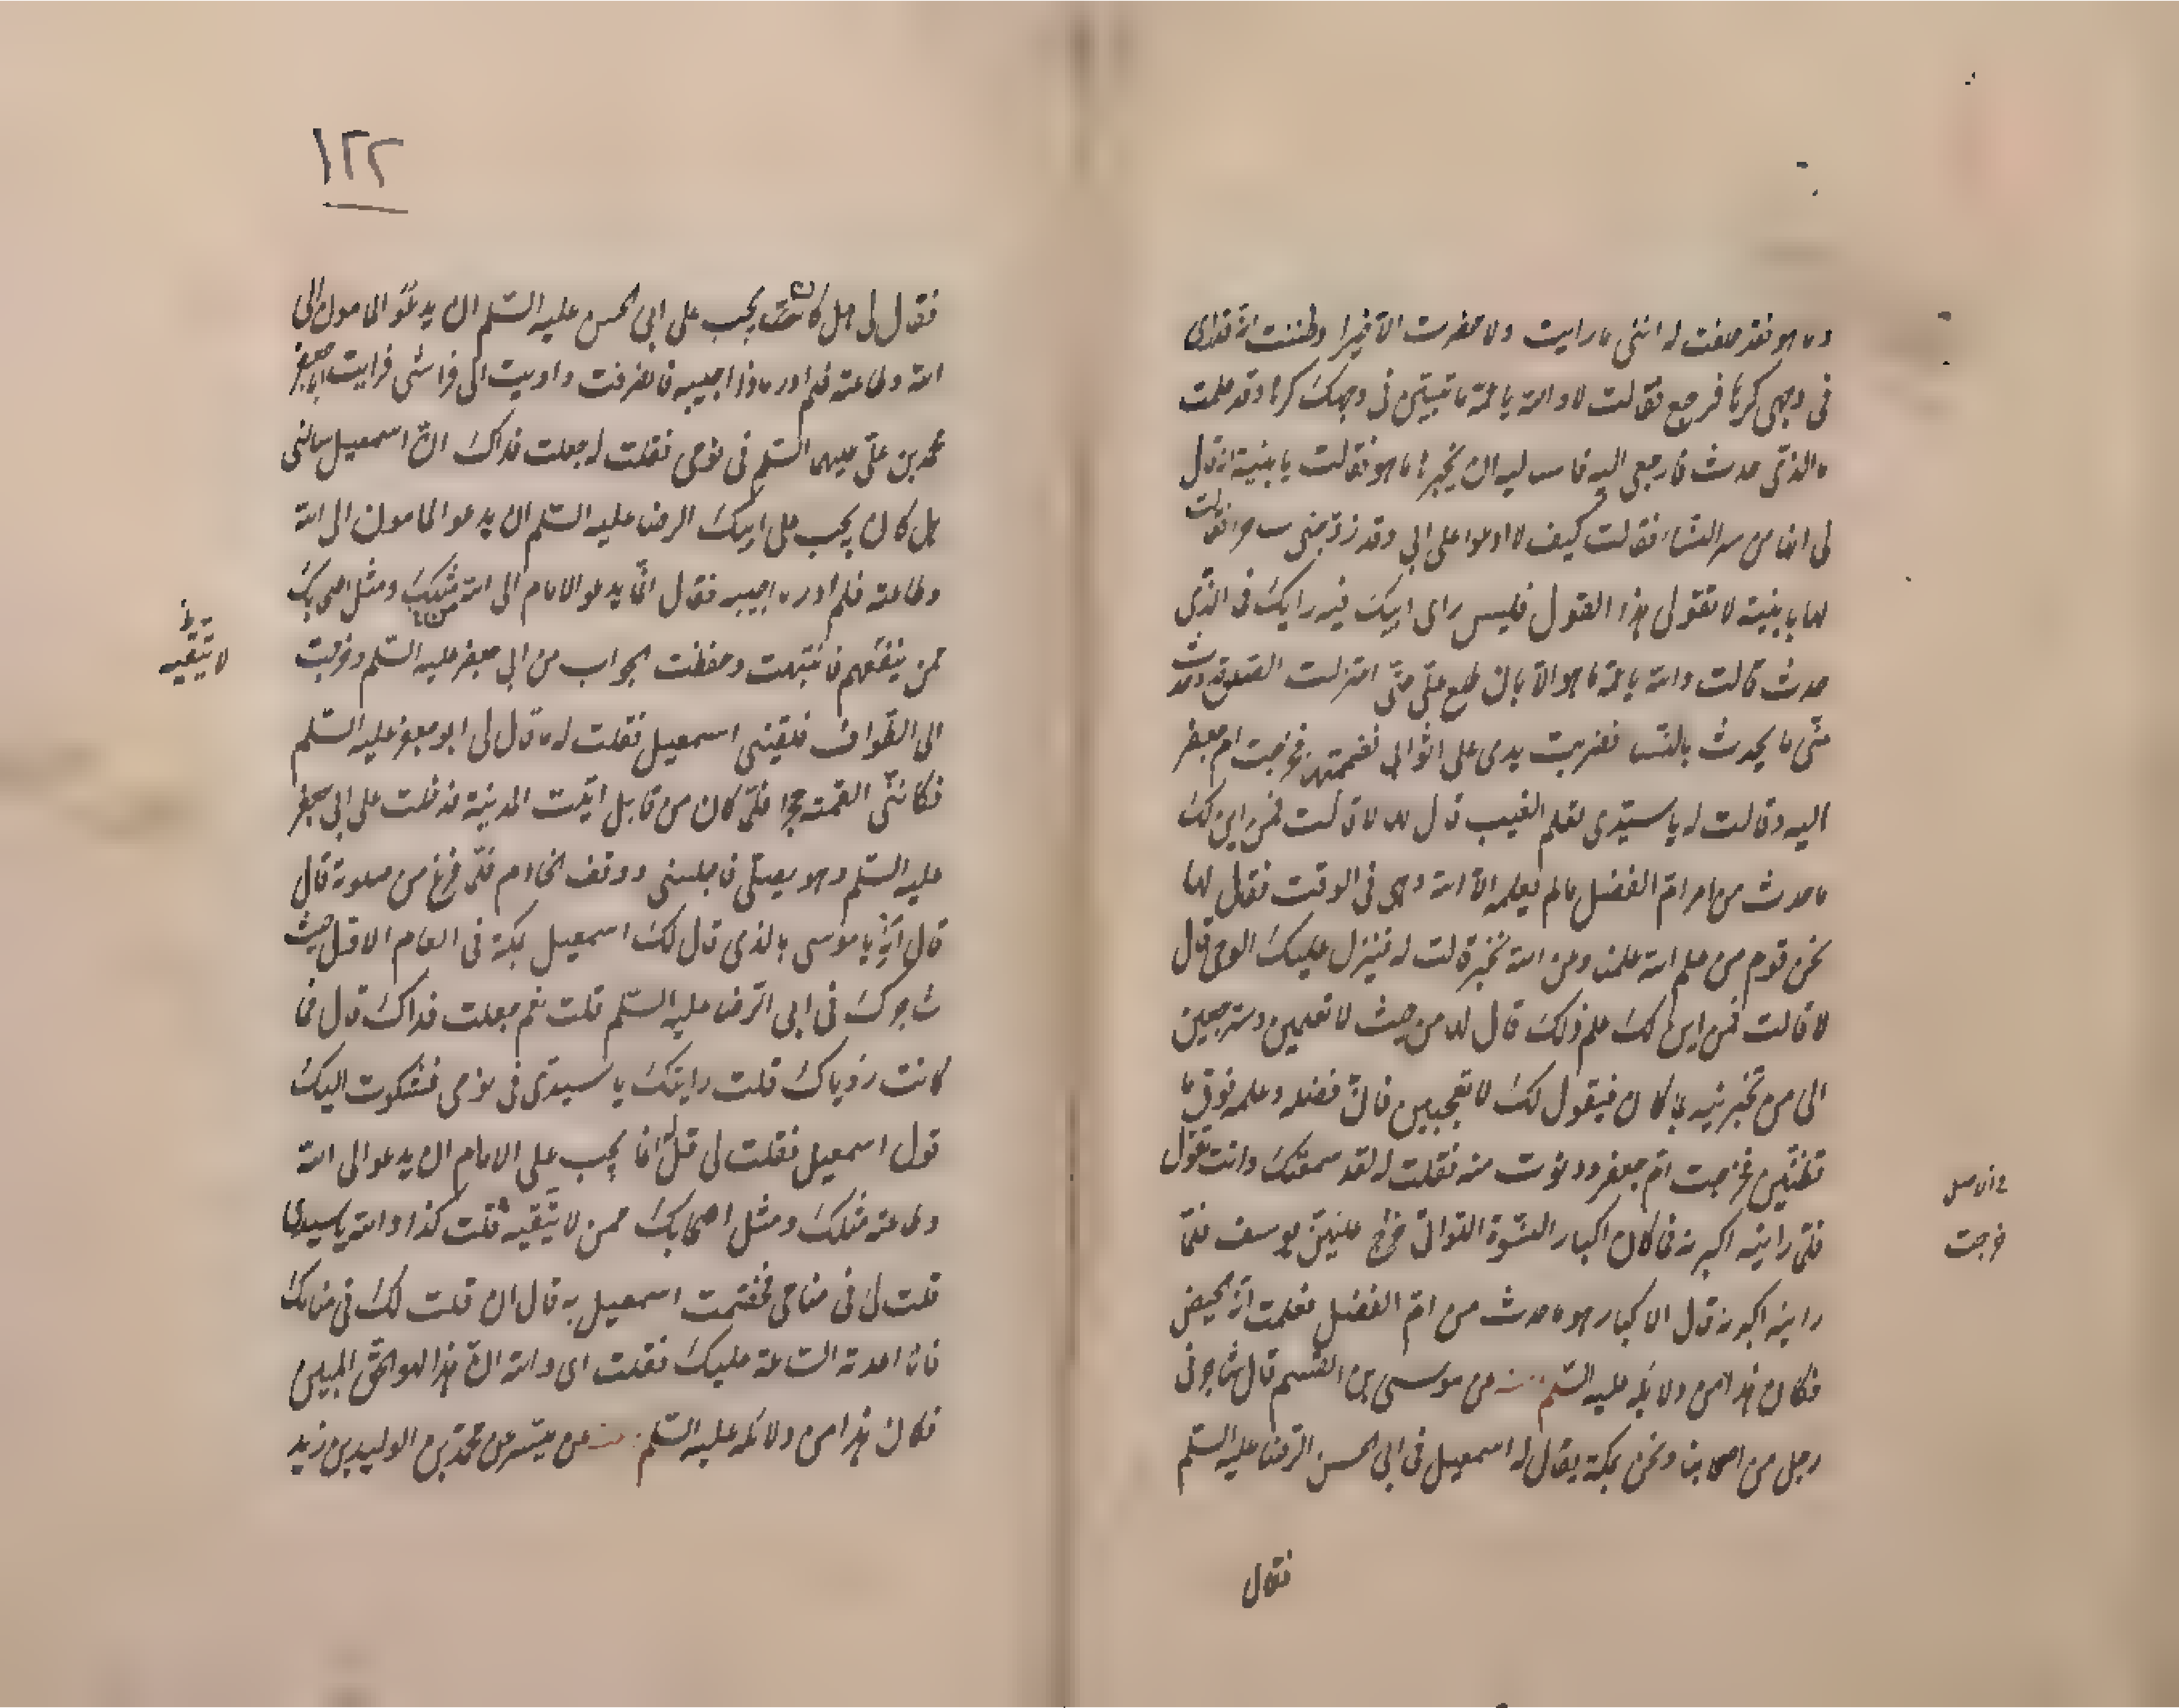 وما هو فقد حلفت له انني ما رايت ولا حضرت الا خيرا وظننت انه قد راى
في وجهي كرها فرجع فقالت لا والله يا عمة ما تبين في وجهك كرها وقد علمت
ما الذي حدث فارجعي اليه فاساليه ان يخبرنا ما هو فقالت يا بنية انه قال
لي انها من سر النساء فقالت كيف لا ادعوا على ابي وقد زوجني ساحرا فقالت
لها يا بنية لا تقولي هذا القول فليس راى ابيك فيه رايك فما الذي
حدث قالت والله يا عمة ما هو الا بان طلع علي حتى اعتزلت الصلوة وحدث
مني ما يحدث بالنساء فضربت يدي على اثوابي فضممتها فخرجت ام جعفر
اليه وقالت له يا سيدي تعلم الغيب قال لها لا قالت فمن اين لك
ما حدث من امر ام الفضل ما لم يعلمه الا الله وهي في الوقت فقال لها
نحن قوم من علم الله علمنا ومن الله نخبر قالت له فينزل عليك الوحي قال
لا قالت فمن اين لك علم ذلك قال لها من حيث لا تعلمين وسترجعين
الى من تخبرينه بما كان فيقول لك لا تعجبين فان فضله وعلمه فوق ما
تظنين فخرجت ام جعفر ودنوت منه فقلت له لقد سمعتك وانت تقول
فلما راينه اكبرنه فما كان اكبار النسوة اللواتي خرج عليهن يوسف فلما
راينه اكبرنه قال الاكبار هو ما حدث من ام الفضل فعلمت انه الحيض
فكان هذا من دلائله عليه السلم عن موسى بن القسم قال شاجرني
رجل من اصحابنا ونحن بمكة يقال له اسمعيل في ابي الحسن الرضا عليه السلم
فقال
في الاصل
خرجت
١٢٢
فقال لي هل كان يجب على ابي الحسن عليه السلم ان يدعو المامون الى
الله وطاعته فلم ادر ماذا اجيبه فانصرفت واويت الى فراشي فرايت ابا جعفر
محمد بن علي عليهما السلم في نومي فقلت له جعلت فداك ان اسمعيل سالني
هل كان يجب على ابيك الرضا عليه السلم ان يدعو المامون الى الله
وطاعته فلم ادر ما اجيبه فقال انما يدعو الامام الى الله مثلك ومثل اصحابك
ممن فانتبهت وحفظت الجواب من ابي جعفر عليه السلم وخرجت
لا يتقيه
الى الطواف فلقيني اسمعيل فقلت له ما قال لي ابو جعفر عليه السلم
فكانني القمته حجرا فلما كان من قابل اتيت المدينة فدخلت على ابي جعفر
عليه السلم وهو يصلي فاجلسني ووقف الخادم فلما فرغ من صلوته قال
قال ايه يا موسى ما الذي قال لك اسمعيل بمكة في العام الاول حيث
شاجرك في ابي الرضا عليه السلم قلت نعم جعلت فداك قال فما
كانت رؤياك قلت رايتك يا سيدي في نومي فشكوت اليك
قول اسمعيل فقلت لي قل له انما يجب على الامام ان يدعو الى الله
وطاعته مثلك ومثل اصحابك ممن لا يتقيه قلت كذا والله يا سيدي
قلت لي في منامي فخصمت اسمعيل به قال ان قلت لك في منامك
فانا اعدته الساعة عليك فقلت اي والله ان هذا لهو الحق المبين
فكان هذا من دلائله عليه السلم عن ميسر عن محمد بن الوليد بن زيد